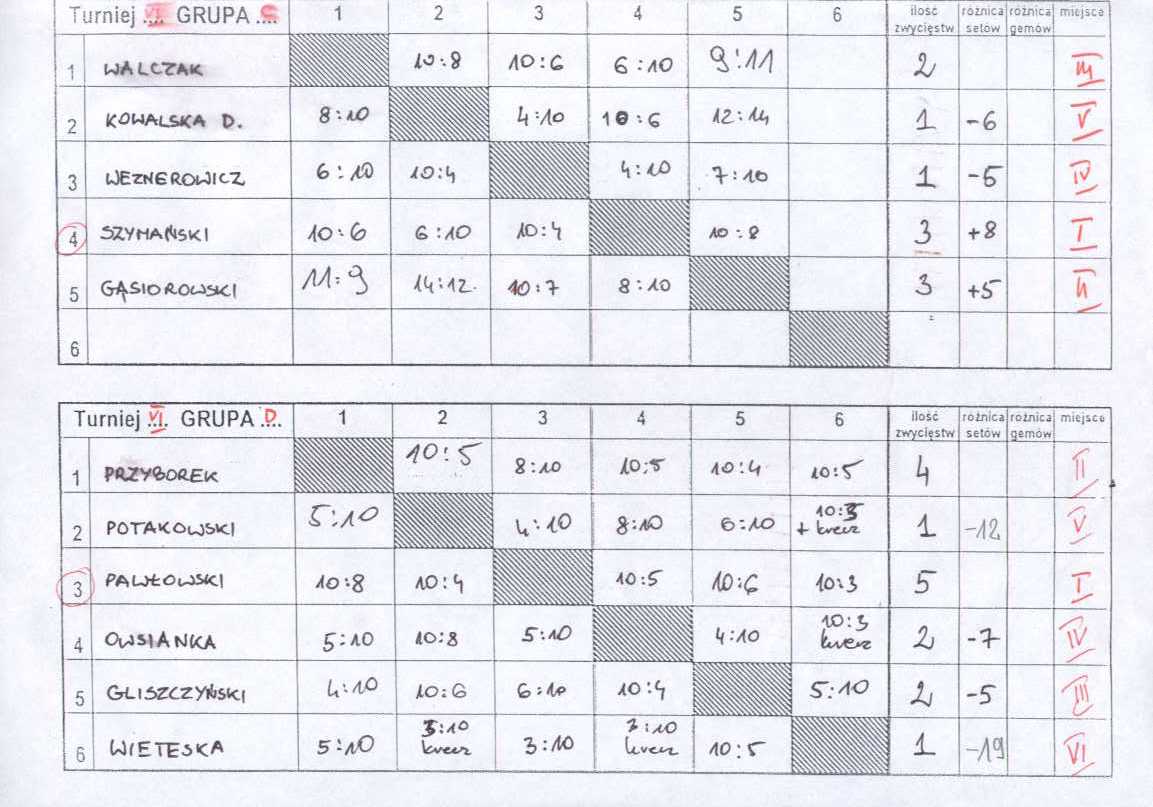 Turniej VI. GRUPA C 1 2 3 4 5 6 ilość zwycięstw różnica setów różnica gemów miejsce
1 WALCZAK 10:8 10:6 6:10 9:11 2 III
2 KOWALSKA D. 8:10 4:10 10:6 12:14 1 -6 V
3 WEZNEROWICZ 6:10 10:4 4:10 7:10 1 -5 IV
4 SZYMAŃSKI 10:6 6:10 10:4 10:8 3 +8 I
5 GĄSIOROWSKI 11:9 14:12. 10:7 8:10 3 +5 II
6
Turniej VI. GRUPA D. 1 2 3 4 5 6 ilość zwycięstw różnica setów różnica gemów miejsce
1 PRZYBOREK 10:5 8:10 10:5 10:4 10:5 4 II
2 POTAKOWSKI 5:10 4:10 8:10 6:10 10:3 + krecz 1 -12 V
3 PAWŁOWSKI 10:8 10:4 10:5 10:6 10:3 5 I
4 OWSIANKA 5:10 10:8 5:10 4:10 10:3 krecz 2 -7 IV
5 GLISZCZYŃSKI 4:10 10:6 6:10 10:4 5:10 2 -5 III
6 WIETESKA 5:10 3:10 krecz 3:10 3:10 krecz 10:5 1 -19 VI